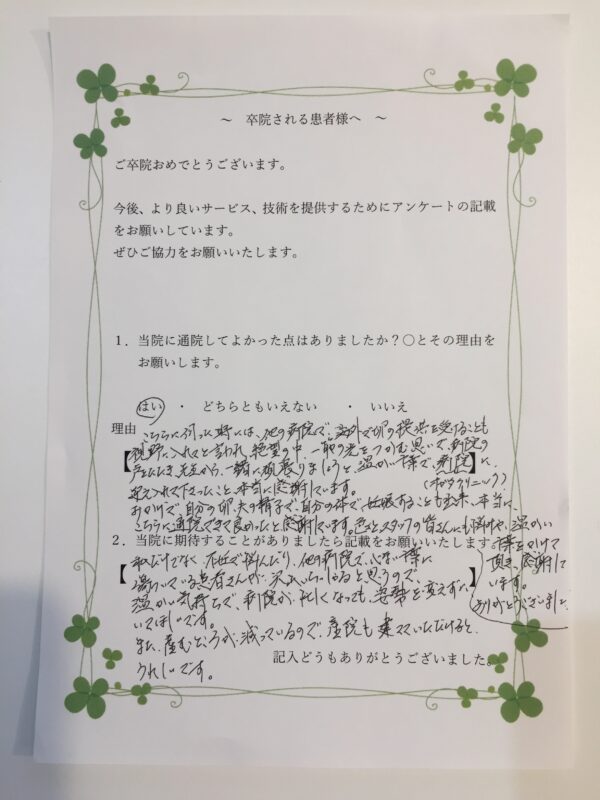 ～ 卒院される患者様へ ～
ご卒院おめでとうございます。
今後、より良いサービス、技術を提供するためにアンケートの記載
をお願いしています。
ぜひご協力をお願いいたします。
1．当院に通院してよかった点はありましたか？○とその理由を
お願いします。
はい ・ どちらともいえない ・ いいえ
理由 こちらに伺った時には、他の病院で、海外で卵の提供を受けることも
視野に入れてと言われ、絶望の中、一筋の光をつかむ思いで、病院の
先生から、一緒に頑張りましょうと、温かい言葉で、病院に
迎え入れて下さったこと、本当に感謝しています。
おかげで、自分の卵、夫の精子で、自分の体で、妊娠することも出来、本当に、
こちらに通院できて良かったと感謝しています。先生とスタッフの皆さんにも
温かい
言葉をかけて
頂き、感謝して
います。
ありがとうございました
2．当院に期待することがありましたら記載をお願いいたします。
私だけでなく、不妊で悩んだり、他の病院で、心ない言葉に
傷いている患者さんが、沢山いらっしゃると思うので、
温かい気持ちで、病院が、忙しくなっても、姿勢を変えずに
いてほしいです。
また、産むところが、減っているので、産院も建てていただけると、
うれしいです。
記入どうもありがとうございました。